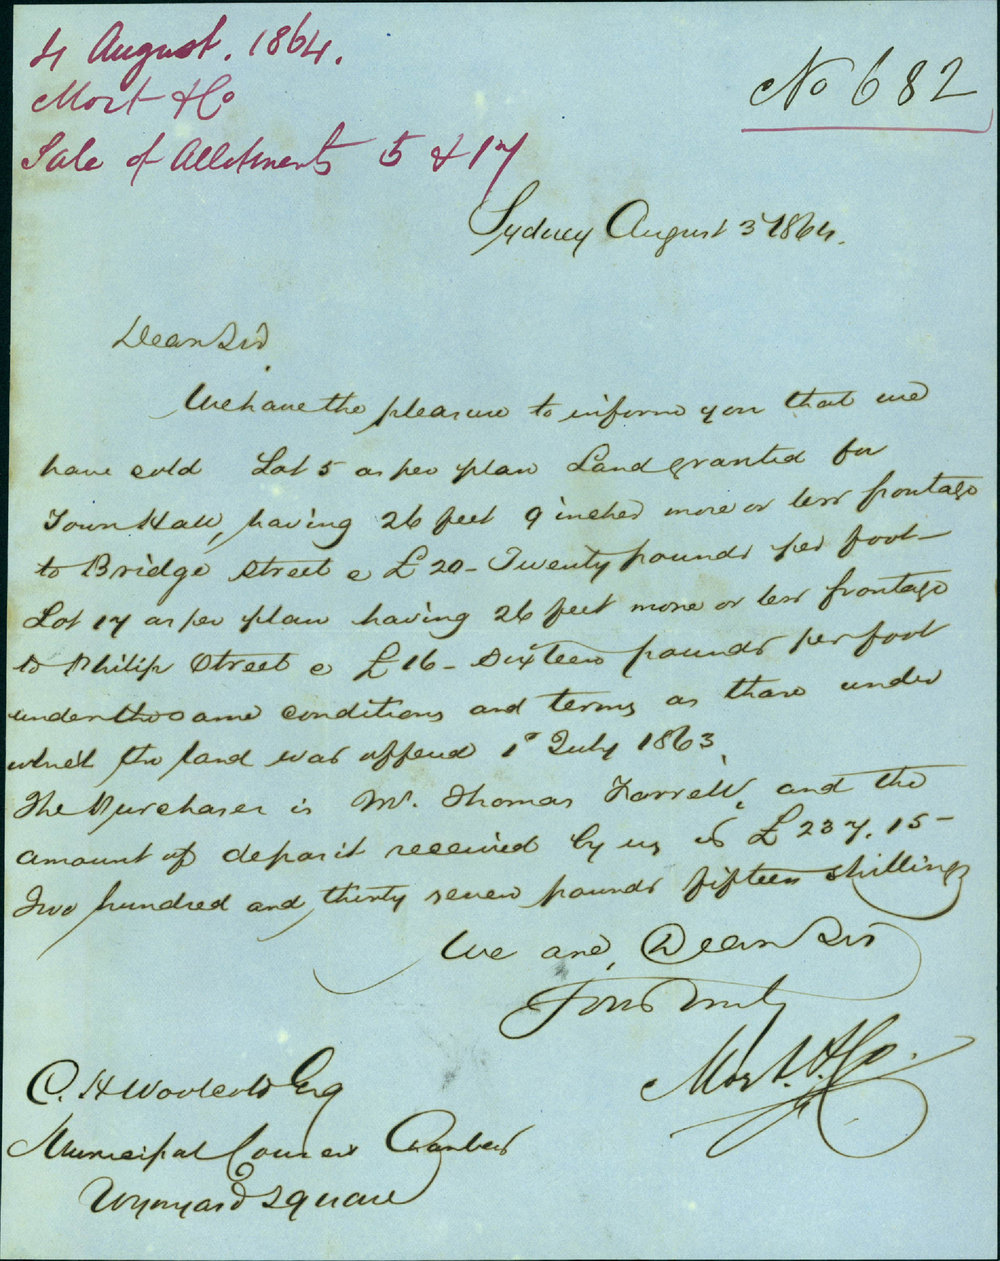 4 August. 1864.
Mort & Co
Sale of Allotments 5 & 17
No 682
Sydney August 3 1864.
Dear Sir
We have the pleasure to inform you that we
have sold Lot 5 as per plan Land granted for
Town Hall, having 26 feet 9 inches more or less frontage
to Bridge Street @ £20 - Twenty pounds per foot -
Lot 17 as per plan having 26 feet more or less frontage
to Philip Street @ £16 - Sixteen pounds per foot
under the same conditions and terms as those under
which the land was offered 1st July 1863.
The Purchaser is Mr. Thomas Farrell, and the
amount of deposit received by us is £237.15 -
Two hundred and thirty seven pounds fifteen shillings
We are, Dear Sir
Yours truly
Mort & Co.
C. H Woolcott Esq
Municipal Council Chambers
Wynyard Square